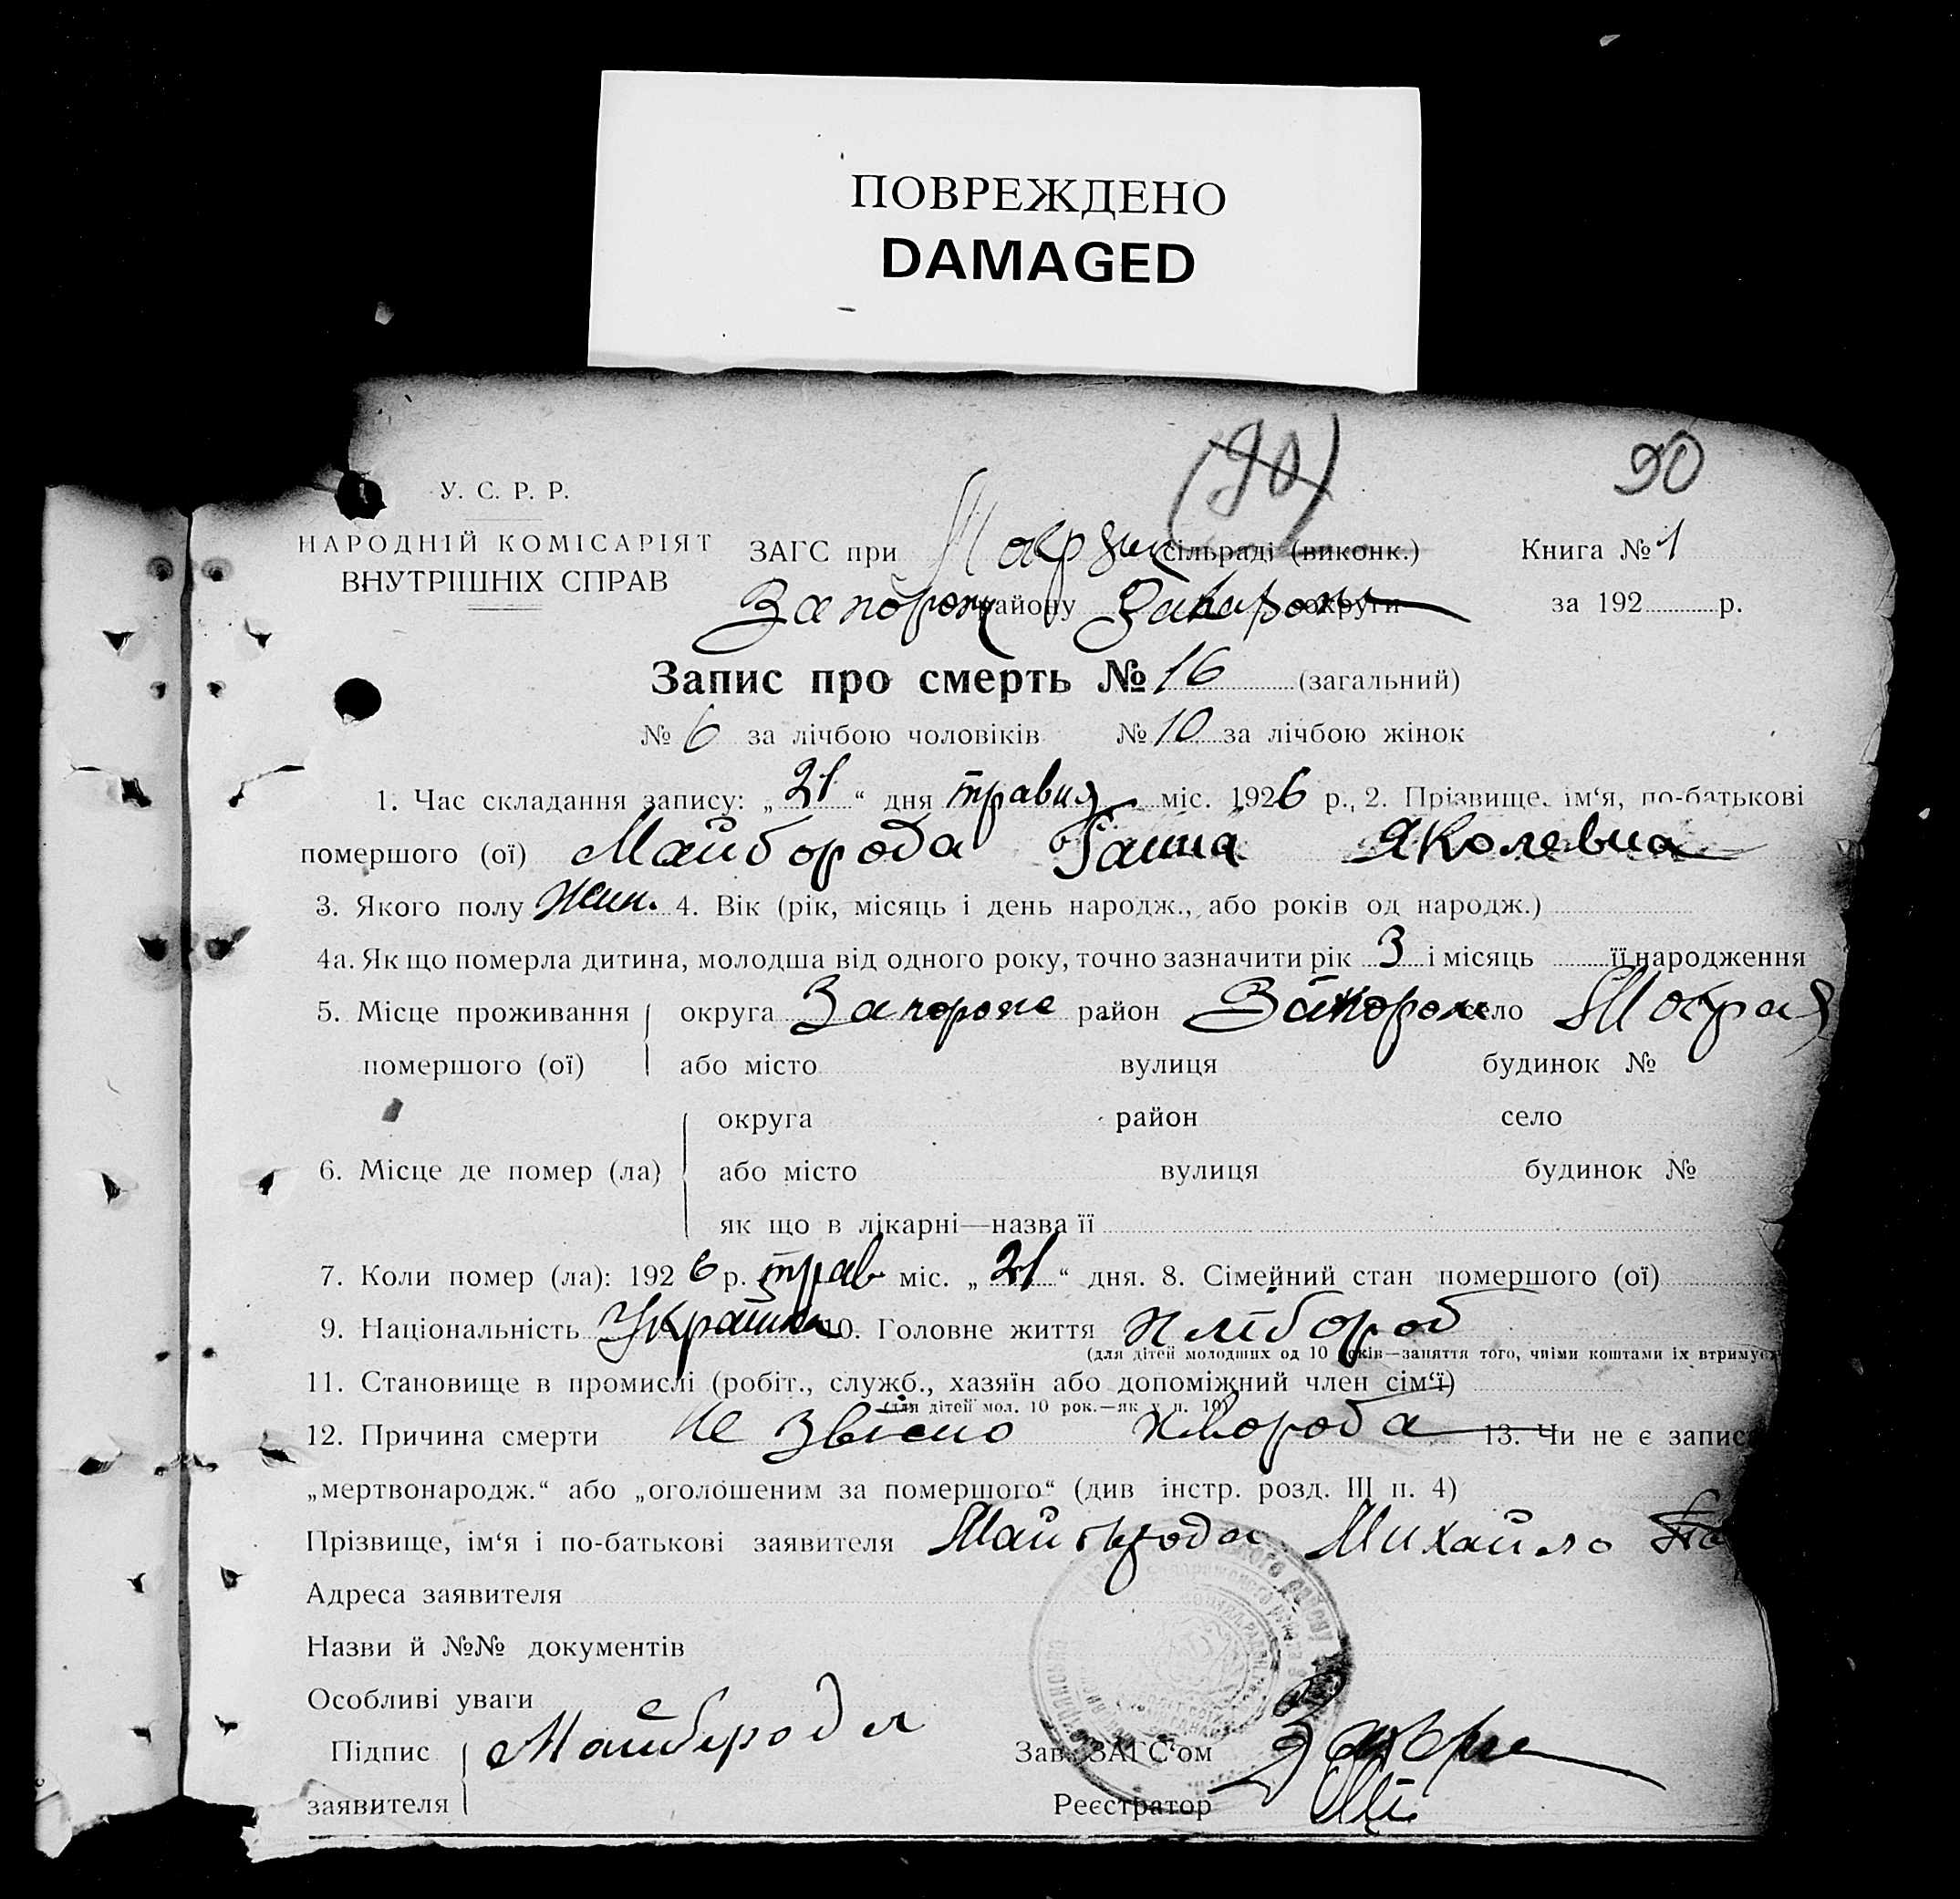 ПОВРЕЖДЕНО
DAMAGED
(90) 90
У. С. Р. Р.
НАРОДНІЙ КОМІСАРІЯТ
ВНУТРІШНІХ СПРАВ
ЗАГС при сільраді (виконк.) Книга № 1
Запорож району Запорож округи за 192 р.
Запис про смерть № 16 (загальний)
№ 6 за лічбою чоловіків № 10 за лічбою жінок
1. Час складання запису: „21“ дня травня міс. 1926 р., 2. Прізвище, ім‘я, по-батькові
помершого (ої) Майборода Ганна Яколевна
3. Якого полу жин. 4. Вік (рік, місяць і день народж., або років од народж.)
4а. Як що померла дитина, молодша від одного року, точно зазначити рік 3 і місяць її народження
5. Місце проживання округа Запороже район Запорож село Мокрая
помершого (ої) або місто вулиця будинок №
округа район село
6. Місце де помер (ла) або місто вулиця будинок №
як що в лікарні—назва її
7. Коли помер (ла): 1926 р. трав міс. „21“ дня. 8. Сімейний стан помершого (ої)
9. Національність Українка 10. Головне життя хлібороб
(для дітей молодших од 10 років—заняття того, чиїми коштами їх втримує
11. Становище в промислі (робіт., служб., хазяїн або допоміжний член сім‘ї)
(для дітей мол. 10 рок.—як у п. 10)
12. Причина смерти не звісно хвороба 13. Чи не є запис
„мертвонародж.“ або „оголошеним за помершого“ (див інстр. розд. III п. 4)
Прізвище, ім‘я і по-батькові заявителя Майборода Михайло
Адреса заявителя
Назви й №№ документів
Особливі уваги
Підпис Майборода Зав. ЗАГС‘ом
заявителя Реєстратор